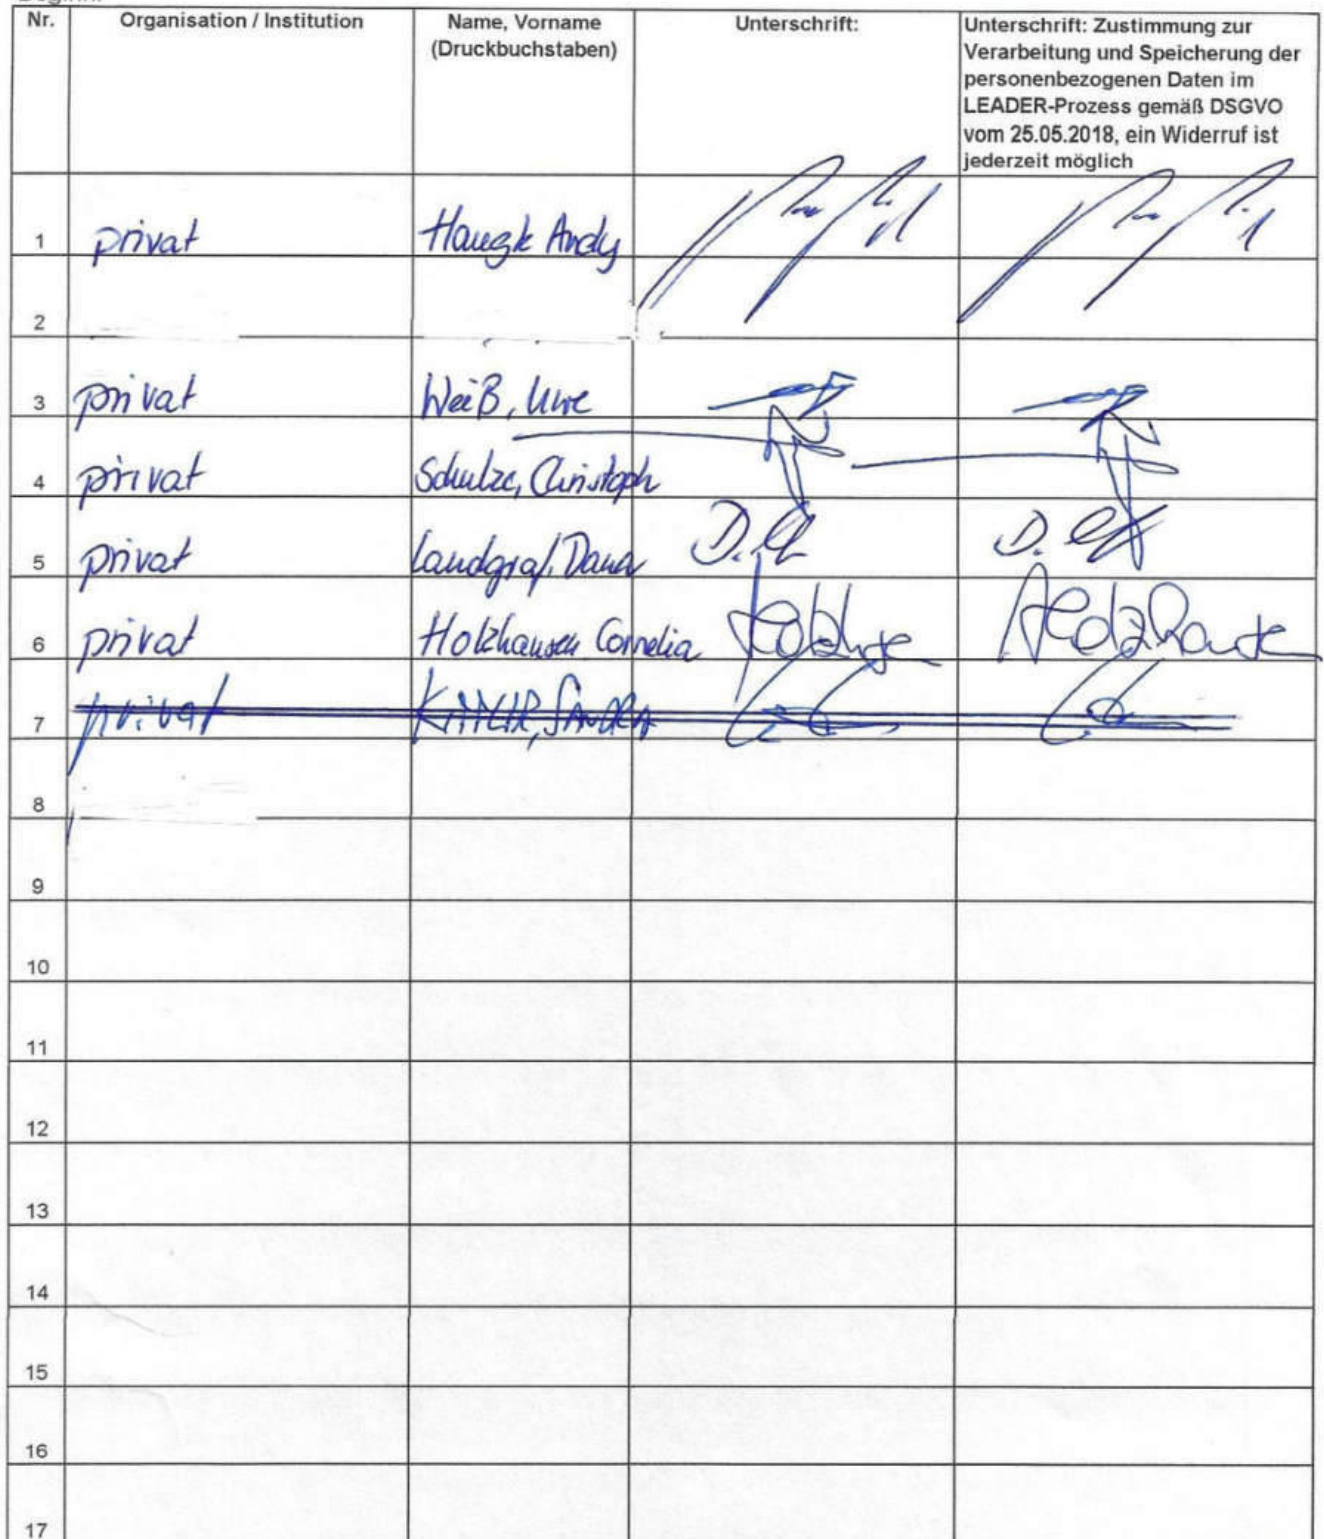 Nr. Organisation / Institution Name, Vorname (Druckbuchstaben) Unterschrift: Unterschrift: Zustimmung zur
Verarbeitung und Speicherung der
personenbezogenen Daten im
LEADER-Prozess gemäß DSGVO
vom 25.05.2018, ein Widerruf ist
jederzeit möglich
1 privat Haugk Andy
2
3 privat Weiß, Uwe
4 privat Schulze, Christoph
5 privat Landgraf, Dana D.
6 privat Holzhausen Cornelia
7 privat
8
9
10
11
12
13
14
15
16
17